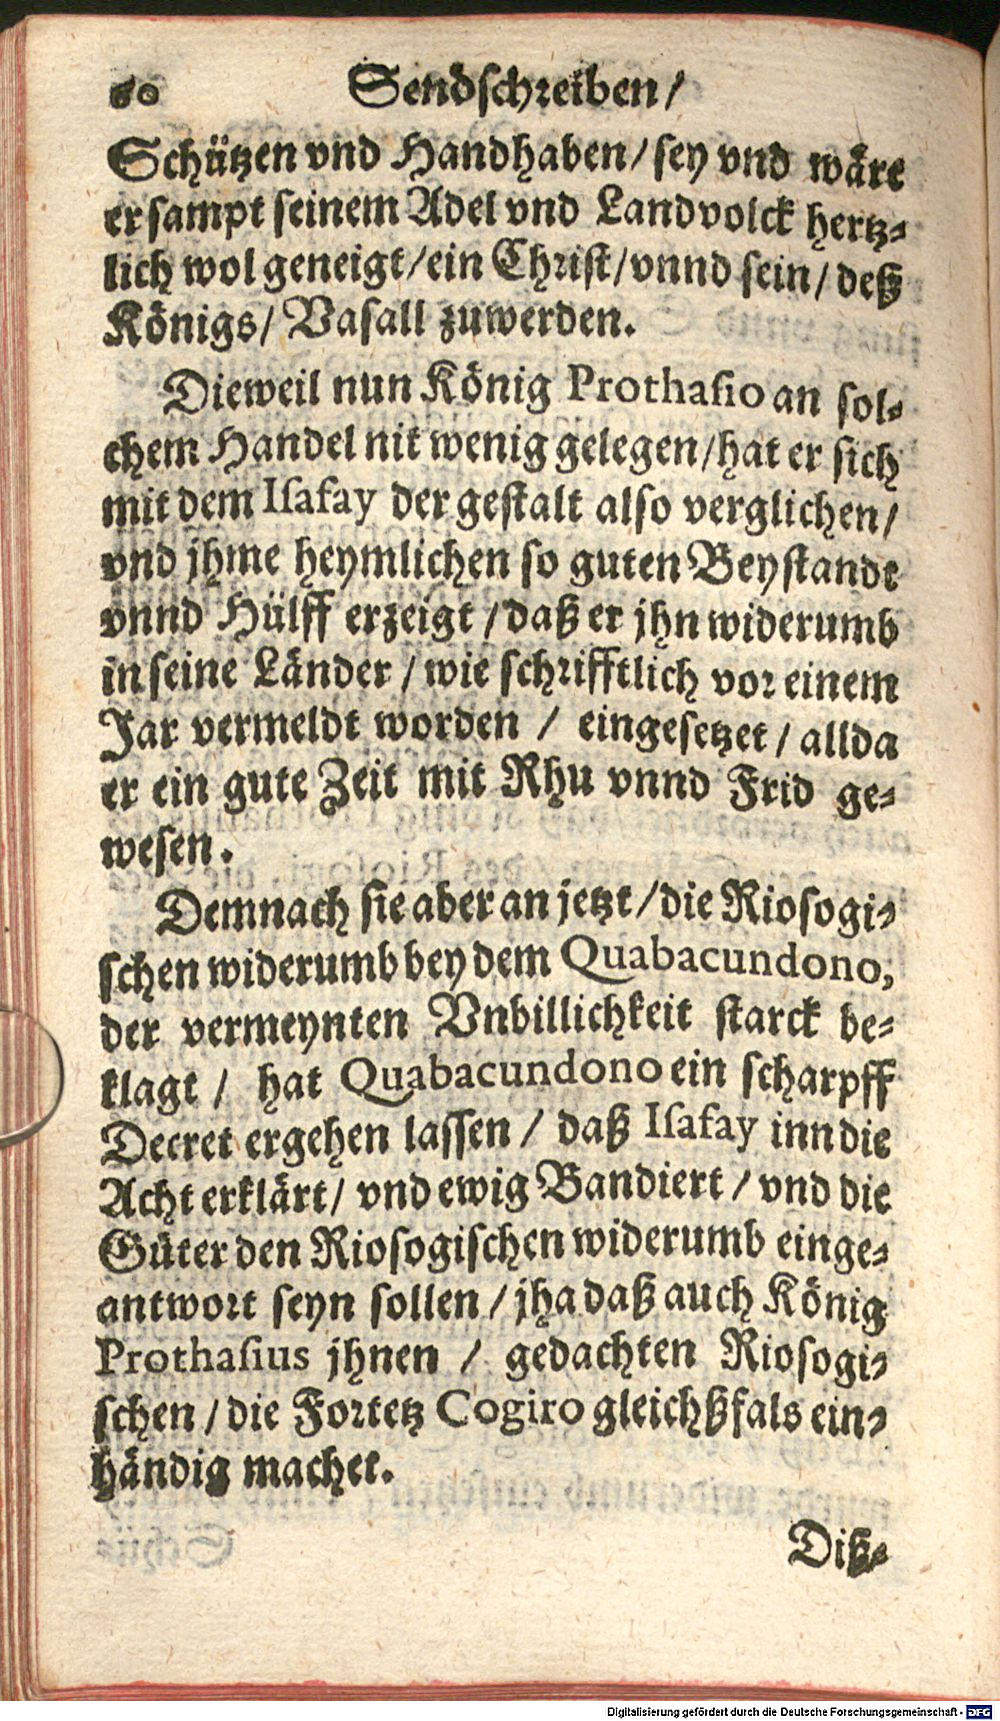 60 Sendschreiben/
Schützen vnd Handhaben/ sey vnd wäre
er sampt seinem Adel vnd Landvolck hertz-
lich wol geneigt/ ein Christ/ vnnd sein/ deß
Königs/ Vasall zuwerden.
Dieweil nun König Prothasio an sol-
chem Handel nit wenig gelegen/ hat er sich
mit dem Isafay der gestalt also verglichen/
vnd jhme heymlichen so guten Beystande
vnnd Hülff erzeigt/ daß er jhn widerumb
in seine Länder/ wie schrifftlich vor einem
Jar vermeldt worden/ eingesetzet/ allda
er ein gute Zeit mit Rhu vnnd Frid ge-
wesen.
Demnach sie aber an jetzt/ die Riosogi-
schen widerumb bey dem Quabacundono,
der vermeynten Vnbillichkeit starck be-
klagt/ hat Quabacundono ein scharpff
Decret ergehen lassen/ daß Isafay inn die
Acht erklärt/ vnd ewig Bandiert/ vnd die
Güter den Riosogischen widerumb einge-
antwort seyn sollen/ jha daß auch König
Prothasius jhnen/ gedachten Riosogi-
schen/ die Fortetz Cogiro gleichßfals ein-
händig machet.
Diß-
Digitalisierung gefördert durch die Deutsche Forschungsgemeinschaft - DFG